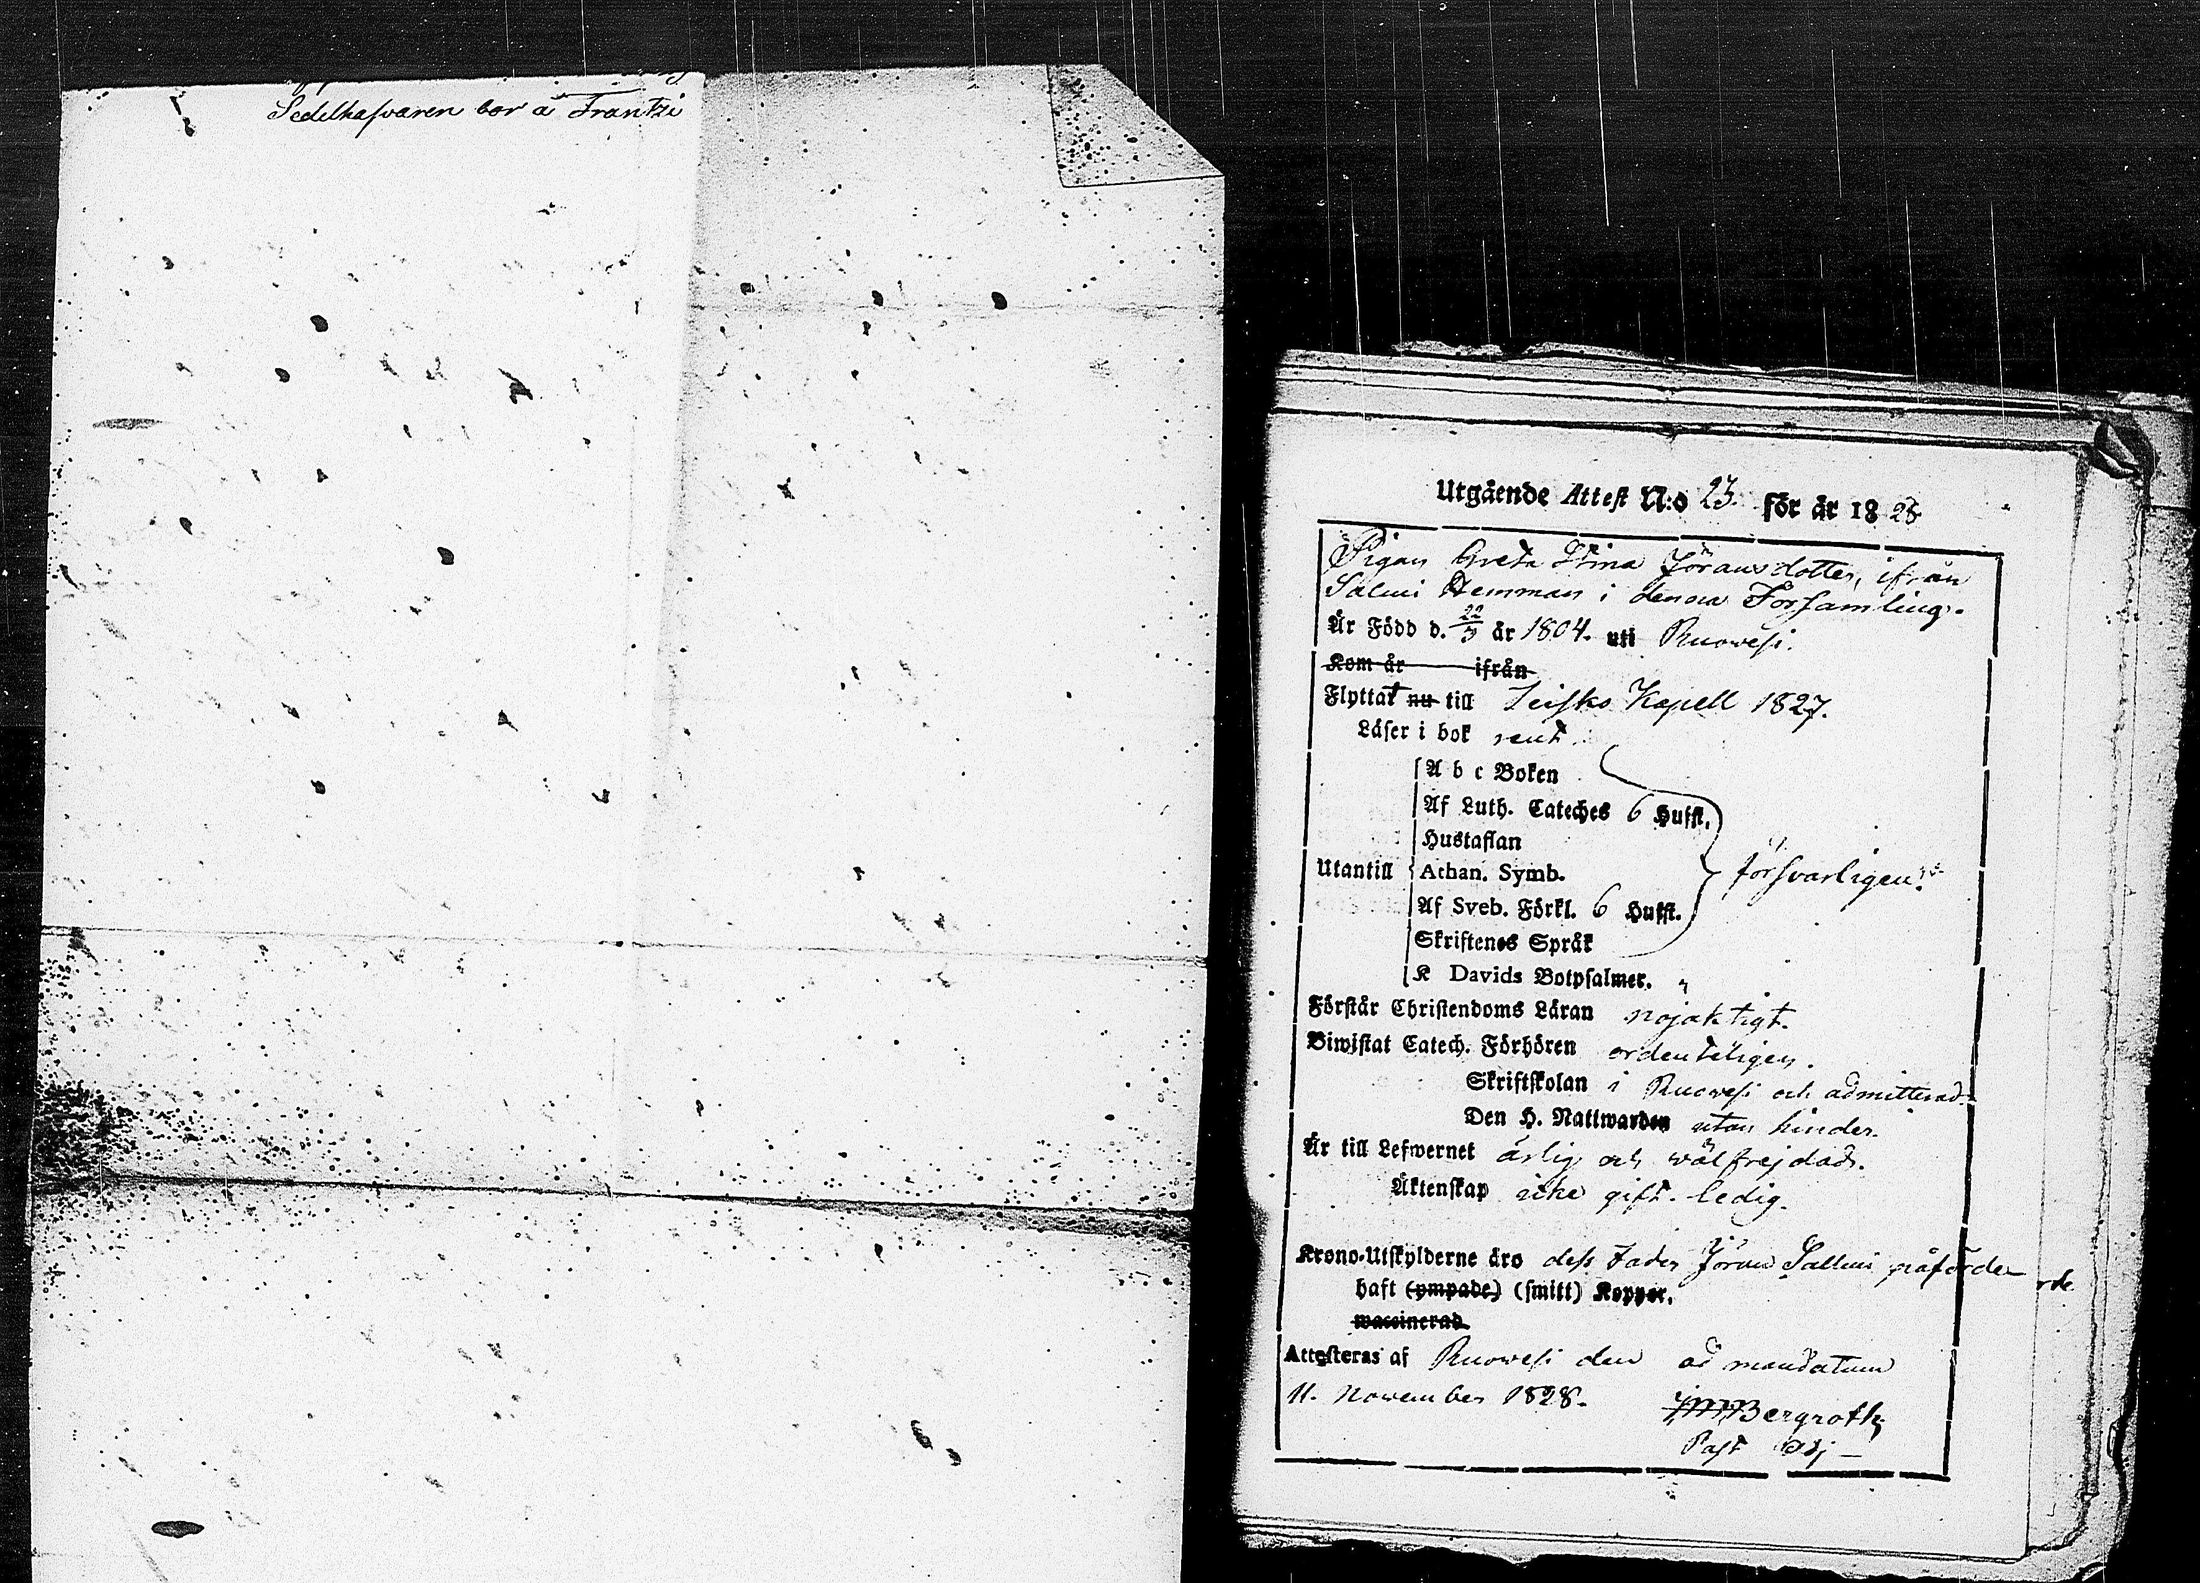 Sedelhafvaren bor å Frantzi
Utgående Attest N:o 23. för år 1828
Pigan Greta Stina Jöransdotter, ifrån
Salmi Hemman i denna Församling.
Är Född d. 22/3 år 1804. uti Ruowesi.
Kom år ifrån
Flyttat nu till Teisko Kapell 1827.
Läser i bok rent
A b c Boken
Af Luth. Cateches 6 Hufst.
Hustaflan
Utantill Athan. Symb. försvarligen
Af Sveb. Förkl. 6 Hufst.
Skriftenes Språk
K Davids Botpsalmer. "
Förstår Christendoms Läran nöjaktigt.
Biwistat Catech. Förhören ordenteligen.
Skriftskolan i Ruowesi och admitterad.
Den H. Nattwarden utan hinder.
Är till Lefwernet ärlig och wälfrejdad.
Äktenskap icke gift. ledig.
Krono-Utskylderne äro dess Fader Jöran Sallmi påförde
haft (ympade) (smitt) Koppor.
waccinerad
Attesteras af Ruowesi den ad mandatum
11. November 1828. Bergroth
Past Adj